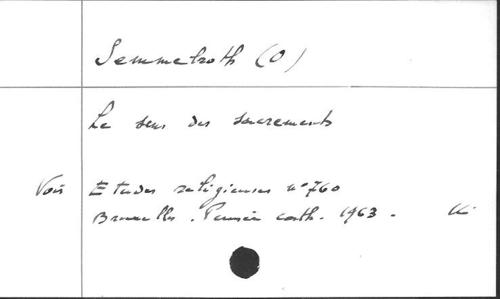 Semmelroth (O)
Le sens des sacrements
Voir Etudes religieuses n° 760
Bruxelles. Pensée cath. 1963.